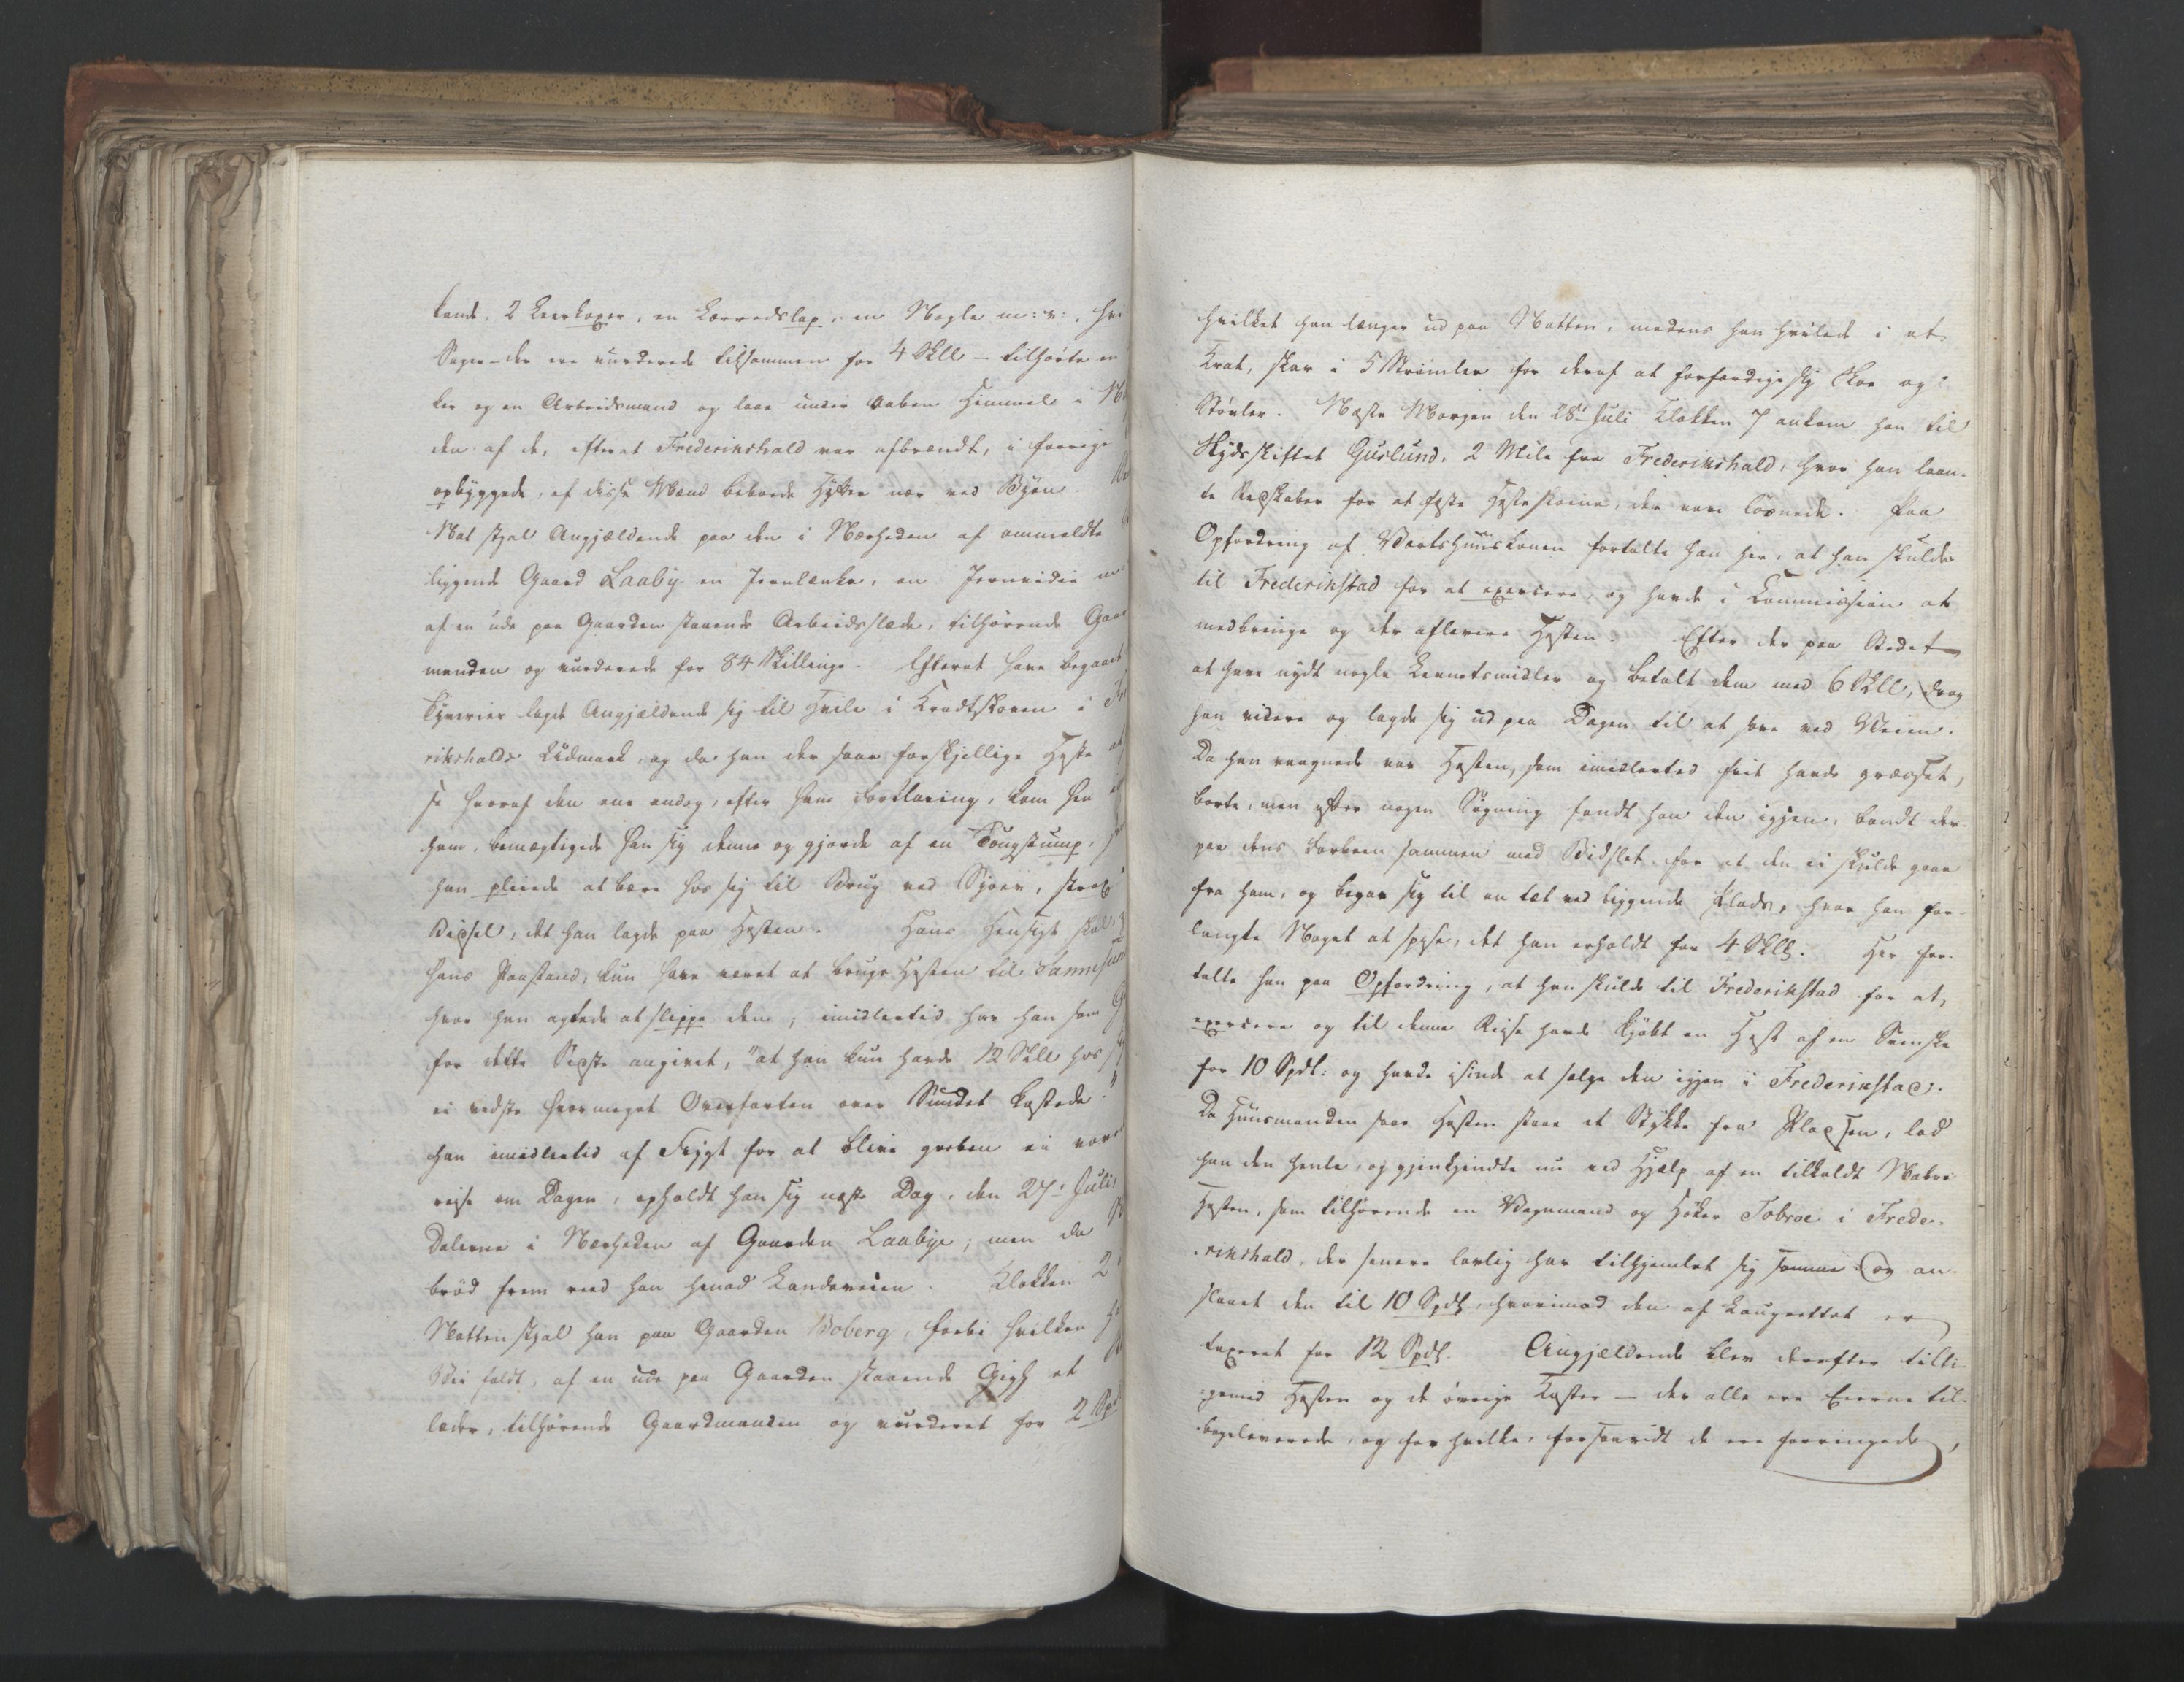 kande, 2 Leerkoper, en Korvedslap, en Nøgle m: v:, hvi
Sager – der ere vurderede tilsammen for 4 Skll – tilhørte en
ker og en Arbeidsmand og laae under aaben Himmel i
den af de, efterat Frederikshald var afbrændt, i forrige
opbyggede, af disse Mænd beboede Hytter nær ved Byen.
Nat stjal Angjældende paa den i Nærheden af ommeldte
liggende Gaard Laaby en Jernlænke, en Jernvidie
af en ude paa Gaarden staaende Arbeidsslæde, tilhørende Gaar
manden og vurderede for 84 Skillinge. Efterat have begaaet
Tyverier lagde Angjældende sig til Hvile i Kradtskoven i
rikshalds Udmark, og da han der saae forskjellige Heste
se hvoraf den ene endog, efter hans Forklaring, kom hen
ham, bemægtigede han sig denne og gjorde af en Tougstump,
han pleiede at bære hos sig til Brug ved Sjøen, strax
Bidsel, det han lagde paa Hesten. Hans Hensigt skal
hans Paastand, kun have været at bruge Hesten til Sannesun
hvor han agtede at slippe den; imidlertid har han som
for dette Sidste angivet, "at han kun havde 12 Skll hos
ei vidste hvormeget Overfarten over Sundet kostede."
han imidlertid af Frygt for at blive greben ei vove
reise om Dagen, opholdt han sig næste Dag, den 27de Juli,
Dalerne i Nærheden af Gaarden Laabye; men da
brød frem red han henad Landeveien. Klokken 2
Natten stjal han paa Gaarden Boberg, forbi hvilken
Vei faldt, af en ude paa Gaarden staaende Gigh et
læder, tilhørende Gaardmanden og vurderet for 2 Spd
hvilket han længer ud paa Natten, medens han hvilede i et
Krat, skar i 5 Strimler for deraf at forfærdige sig Skoe og
Støvler. Næste Morgen den 28de Juli Klokken 7 ankom han til
Skydsskiftet Guslund, 2 Mile fra Frederikshald, hvor han laan-
te Redskaber for at fæste Hesteskoene, der vare løsnede. Paa
Opfordring af Vertshuuskonen fortalte han her, at han skulde
til Frederikstad for at exercere, og havde i Commission at
medbringe og der aflevere Hesten. Efter der paa Stedet
at have nydt nogle Levnetsmidler og betalt dem med 6 Skll, drog
han videre og lagde sig ud paa Dagen til at sove ved Veien.
Da han vaagnede var Hesten, som imidlertid frit havde græsset,
borte, men efter nogen Søgning fandt han den igjen, bandt der-
paa dens Forbeen sammen med Bidslet for at den ei skulde gaae
fra ham, og begav sig til en tæt ved liggende Plads, hvor han for-
langte Noget at spise, det han erholdt for 4 Skll. Her for-
talte han paa Opfordring, at han skulde til Frederikstad for at
exercere og til denne Reise havde kjøbt en Hest af en Svenske
for 10 Spdl: og havde isinde at sælge den igjen i Frederikstad.
Da Huusmanden saae Hesten staae et Stykke fra Pladsen, lod
han den hente, og gjenkjendte nu ved Hjælp af en tilkaldt Nabo
Hesten, som tilhørende en Vognmand og Høker Tobroe i Frede-
rikshald, der senere lovlig har tilhjemlet sig samme og an-
slaaet den til 10 Spdl, hvorimod den af Laugrettet er
taxeret for 12 Spdl. Angjældende blev derefter tilli-
gemed Hesten og de øvrige Koster – der alle ere Eierne til-
bageleverede, og for hvilke, forsaavidt de ere forringede,